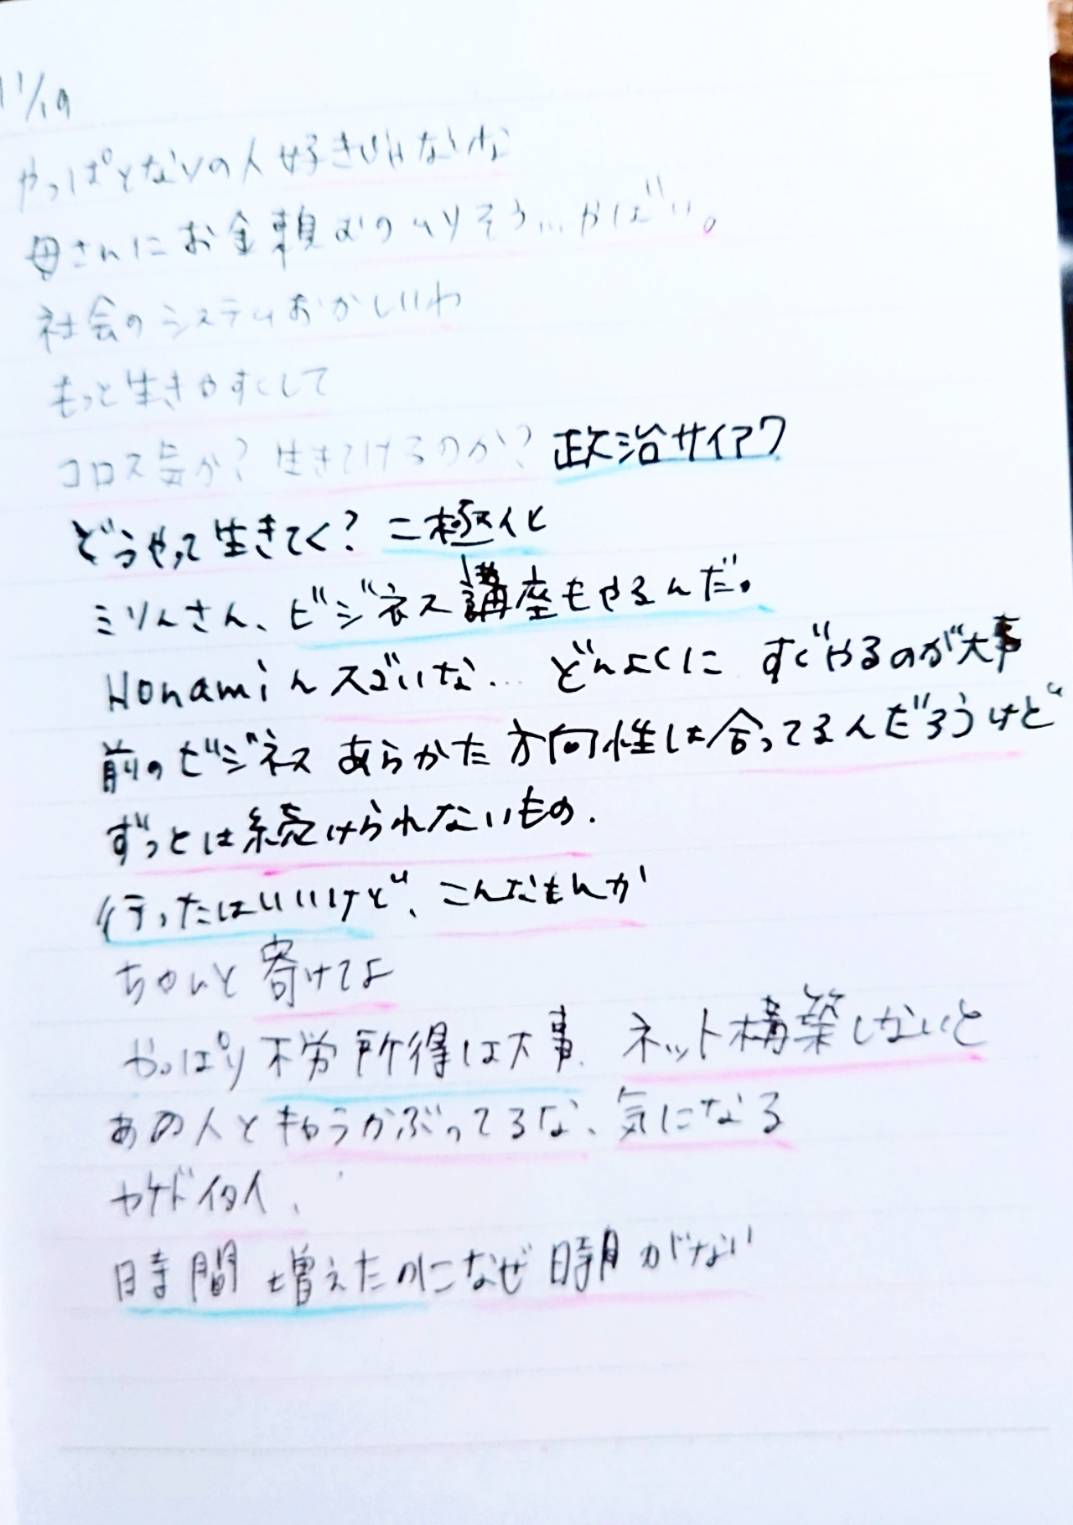 11/19
やっぱとなりの人好きじゃないな
母さんにお金頼むのムリそう…かばい。
社会のシステムおかしいわ
もっと生きやすくして
コロス気か？生きてけるのか？政治サイアク
どうやって生きてく？二極化
ミリんさん、ビジネス講座もやるんだ。
Honamiんスゴいな… どんよくに すぐやるのが大事
前のビジネス あらかた方向性は合ってるんだろうけど
ずっとは続けられないもの.
行ったはいいけど、こんなもんか
ちゃんと寄けてよ
やっぱり不労所得は大事. ネット構築しないと
あの人とキョウかぶってるな、気になる
ヤケド イタイ、
時間増えたのになぜ時間がない